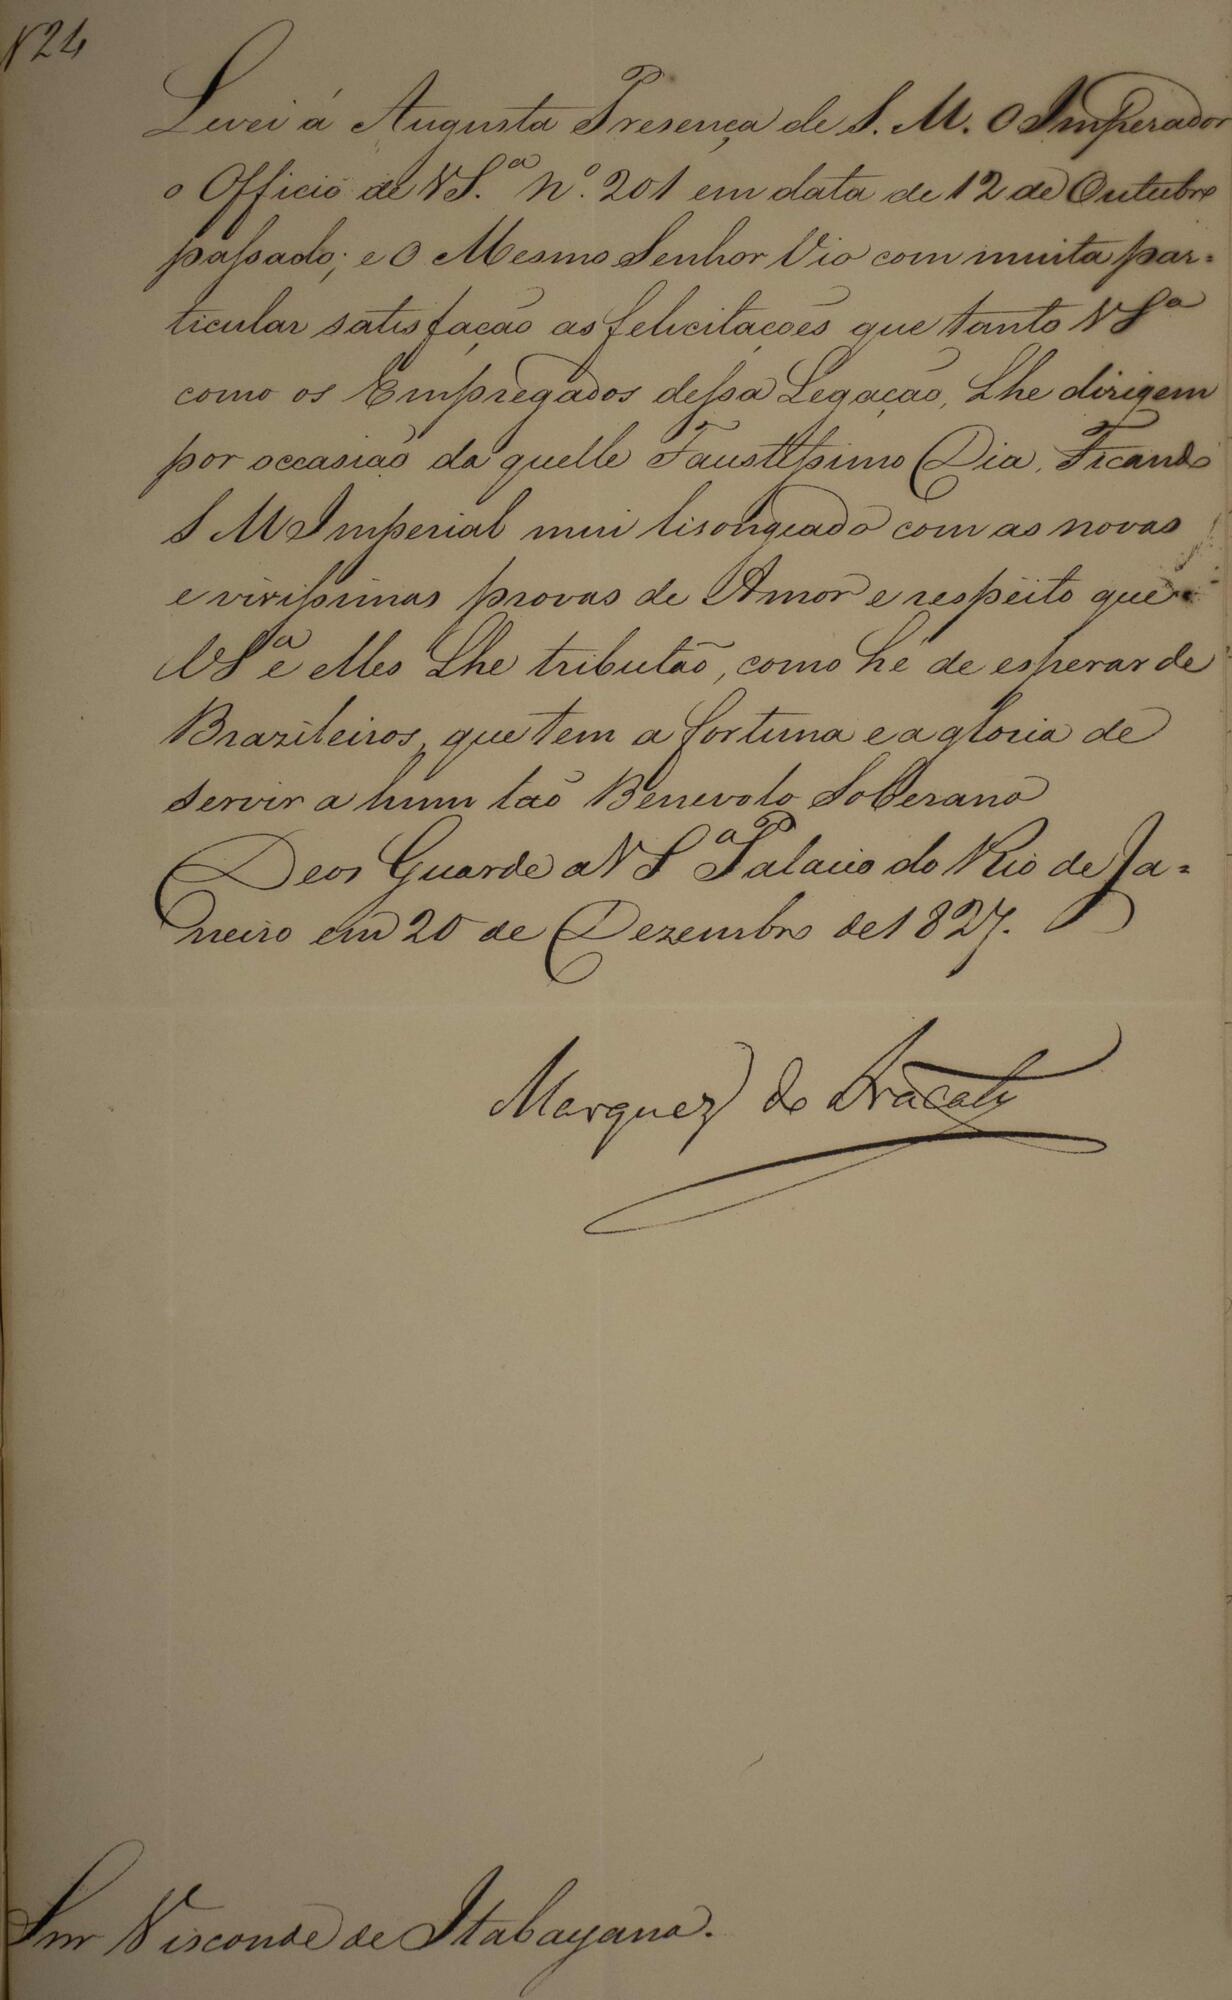 N 24
Levei á Augusta Presença de S. M. O Imperador
o Officio de VS.ª N.º 201 em data de 12 de Outubro
passado; e O Mesmo Senhor Vio com muita par=
ticular satisfação as felicitações que tanto VSª
como os Empregados dessa Legação, Lhe dirigem
por occasião da quelle Faustissimo Dia, Ficando
S M Imperial mui lisongeado com as novas
e virissimas provas de Amor e respeito que
VSª e elles Lhe tributão, como hé de esperar de
Brazileiros, que tem a fortuna e a gloria de
servir a hum tão Benevolo Soberano
Deos Guarde a VSª Palacio do Rio de Ja=
neiro em 20 de Dezembro de 1827.
Marquez do Aracaty
Snr Visconde de Itabayana.